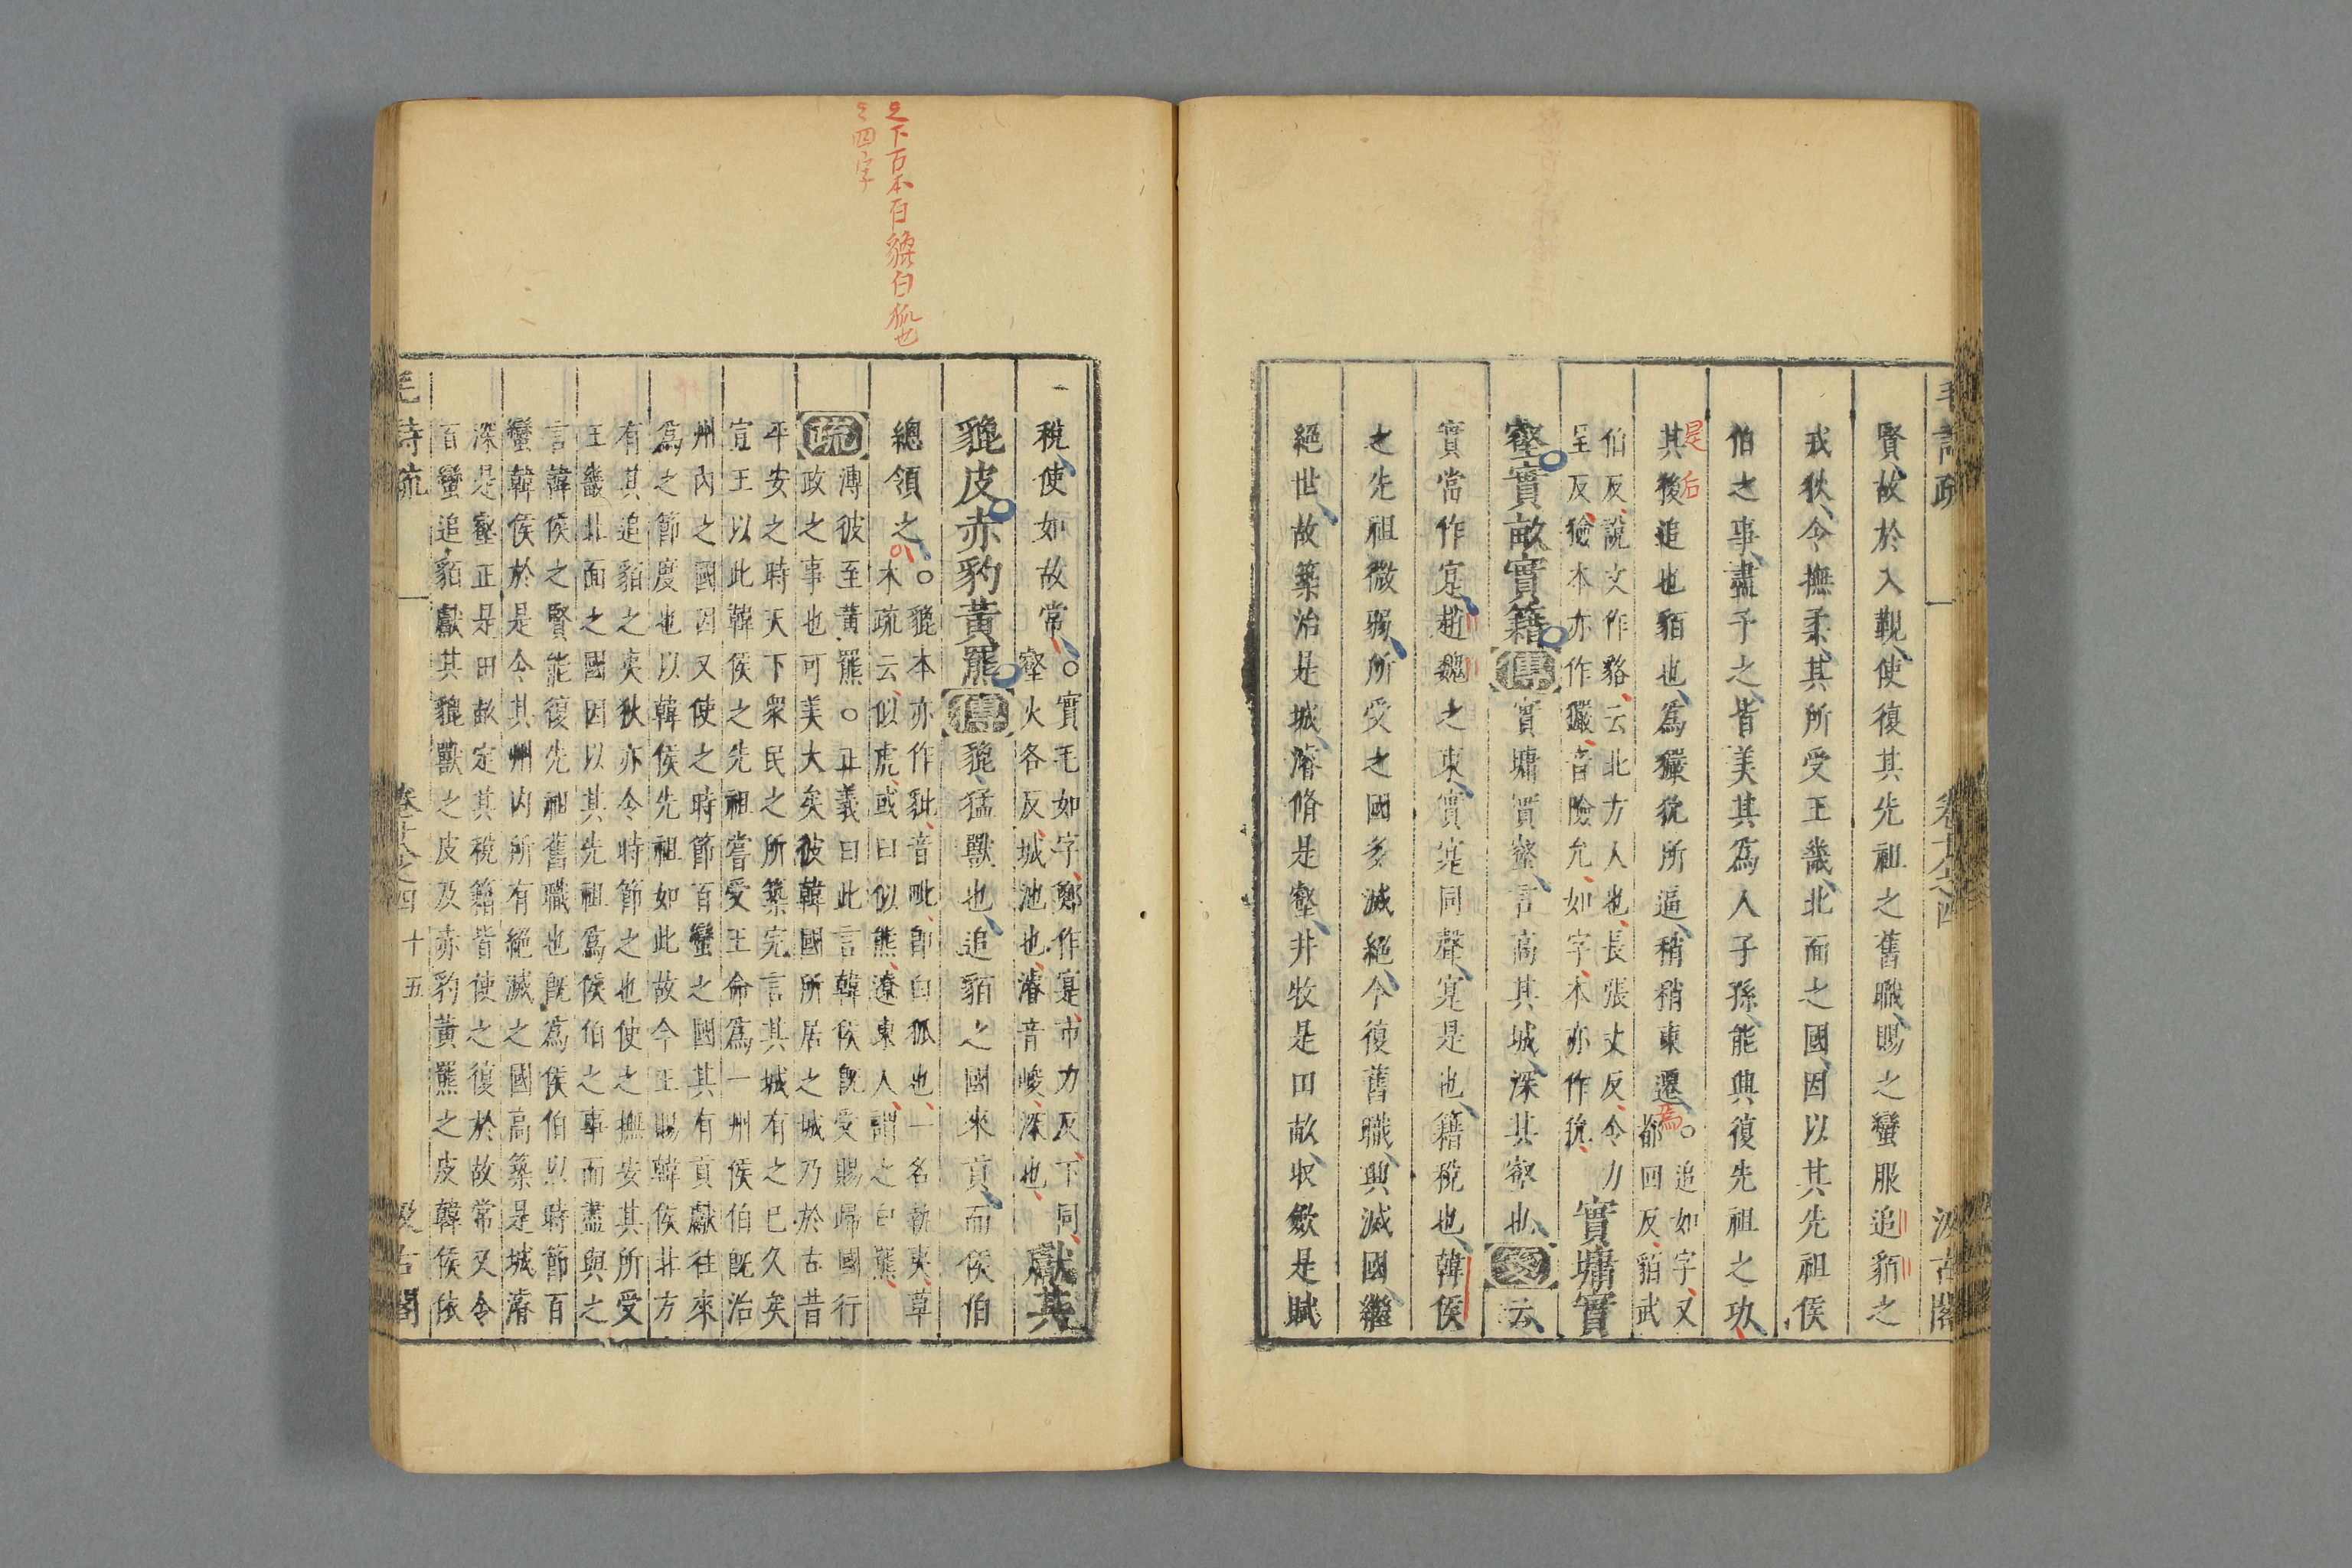 毛詩疏 卷十八之四 汲古閣
賢故於入覲使復其先祖之舊職賜之蠻服追貊之
戎狄令撫柔其所受王畿北面之國因以其先祖侯
伯之事盡予之皆美其爲人子孫能興復先祖之功
其後追也貊也爲玁狁所逼稍稍東遷○追如字又
都回反貊武
是 后
爲
伯反說文作貉云北方人也長張丈反令力
呈反獫本亦作玁音險允如字本亦作狁實墉實
壑實畝實籍傳實墉實壑言高其城深其壑也箋云
實當作寔趙魏之東實寔同聲寔是也籍稅也韓侯
之先祖微弱所受之國多滅絕今復舊職興滅國繼
絕世故築治是城濬脩是壑井牧是田畝收斂是賦
稅使如故常○實毛如字鄭作寔市力反下同
壑火各反城池也濬音峻深也獻其
貔皮赤豹黃羆傳貔猛獸也追貊之國來貢而侯伯
總領之○貔本亦作豼音毗即白狐也一名執夷草
木疏云似虎或曰似熊遼東人謂之白羆
之下古本白貔白狐也
之四字
疏溥彼至黃羆○正義曰此言韓侯旣受賜歸國行
政之事也可美大矣彼韓國所居之城乃於古昔
平安之時天下衆民之所築完言其城有之已久矣
宣王以此韓侯之先祖嘗受王命爲一州侯伯旣治
州內之國因又使之時節百蠻之國其有貢獻往來
爲之節度也以韓侯先祖如此故今王賜韓侯北方
有其追貊之夷狄亦令時節之也使之撫安其所受
王畿北面之國因以其先祖爲侯伯之事而盡與之
言韓侯之賢能復先祖舊職也旣爲侯伯以時節百
蠻韓侯於是令其州內所有絕滅之國高築是城濬
深是壑正是田畝定其稅籍皆使之復於故常又令
百蠻追貊獻其貔獸之皮及赤豹黃羆之皮韓侯依
毛詩疏 卷十八之四 十五 汲古閣